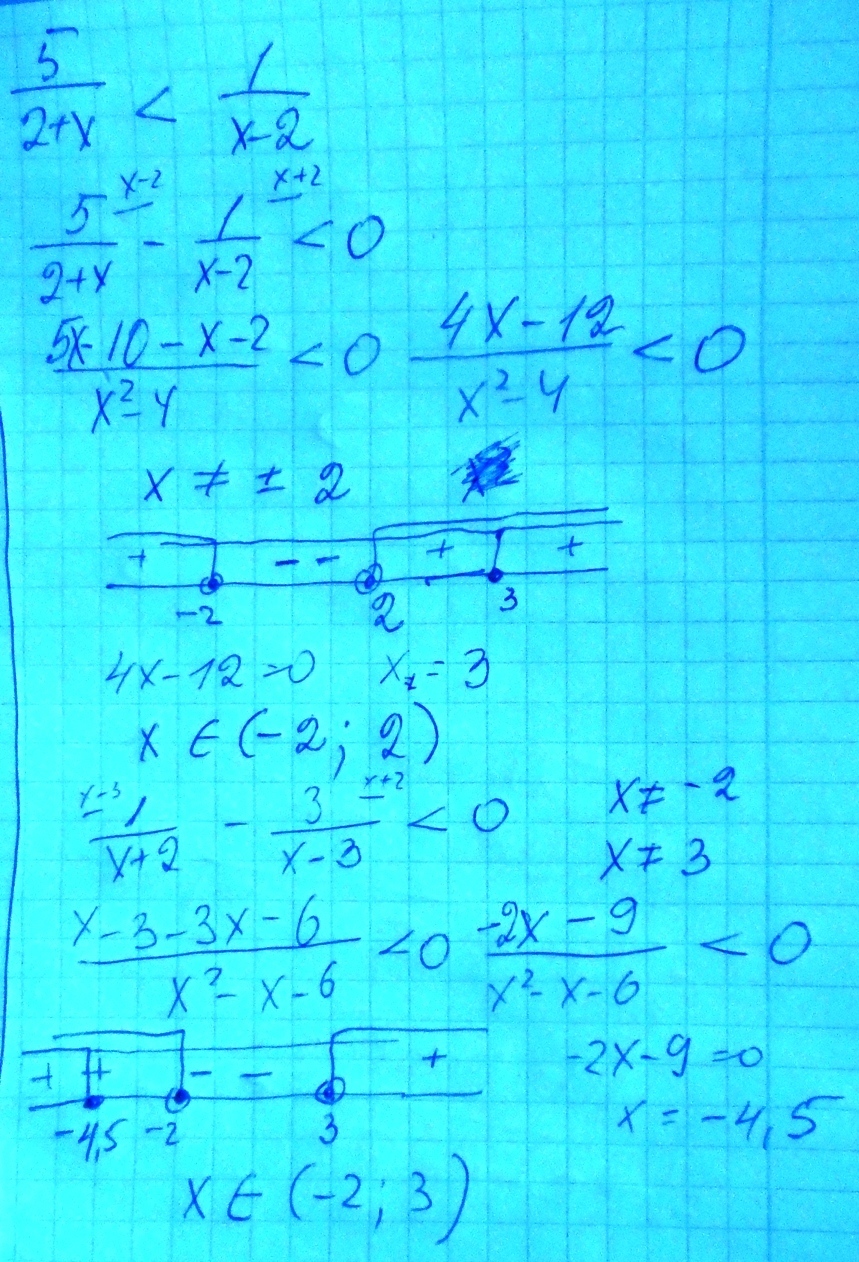 5/(2+x) < 1/(x-2)
5/(2+x) ^(x-2) - 1/(x-2) ^(x+2) < 0
(5x-10-x-2)/(x²-4) < 0 (4x-12)/(x²-4) < 0
x ≠ ± 2
+ - - + +
-2 2 3
4x-12=0 x₁=3
x ∈ (-2; 2)
^(x-3) 1/(x+2) - 3/(x-3) ^(x+2) < 0 x ≠ -2
x ≠ 3
(x-3-3x-6)/(x²-x-6) <0 (-2x-9)/(x²-x-6) < 0
+ + - - + -2x-9=0
-4,5 -2 3 x = -4,5
x ∈ (-2; 3)